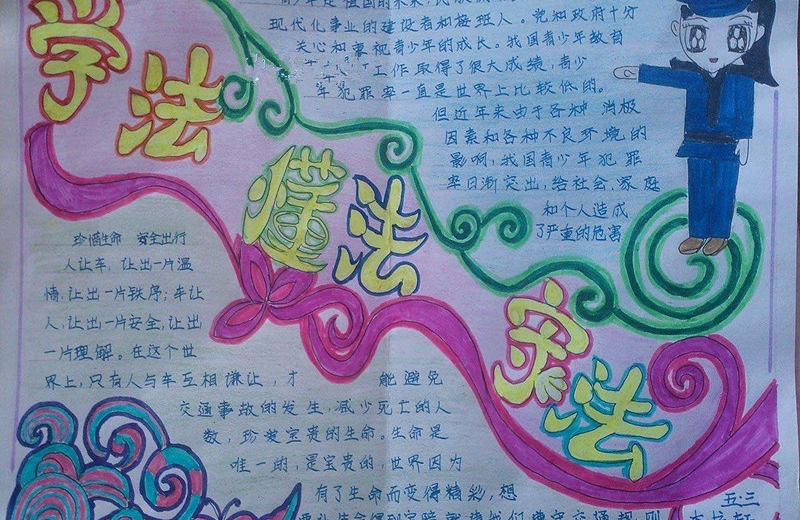 学法
懂法
守法
现代化事业的建设者和接班人。党和政府十分
关心和重视青少年的成长。我国青少年教育
工作取得了很大成绩,青少
年犯罪率一直是世界上比较低的。
但近年来由于各种消极
因素和各种不良环境的
影响,我国青少年犯罪
率日渐突出,给社会、家庭
和个人造成
了严重的危害
珍惜生命 安全出行
人让车,让出一片温
情,让出一片秩序;车让
人,让出一片安全,让出
一片理解。在这个世
界上,只有人与车互相谦让,才 能避免
交通事故的发生,减少死亡的人
数,珍爱宝贵的生命。生命是
唯一的,是宝贵的,世界因为
有了生命而变得精彩,想
五.三